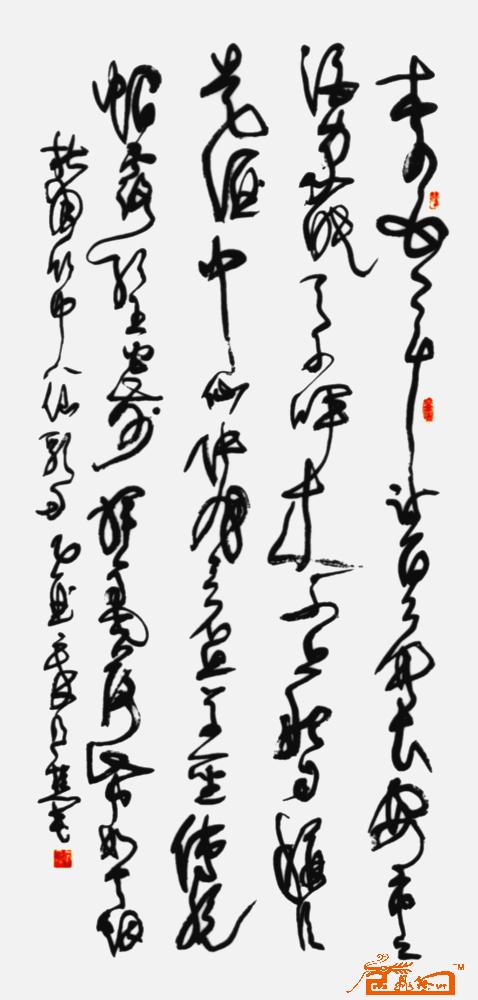 李白一斗诗百篇长安市上
酒家眠天子呼来不上船自称臣
是酒中仙张旭三杯草圣传脱
帽露顶王公前挥毫落纸如云烟
杜甫饮中八仙歌句